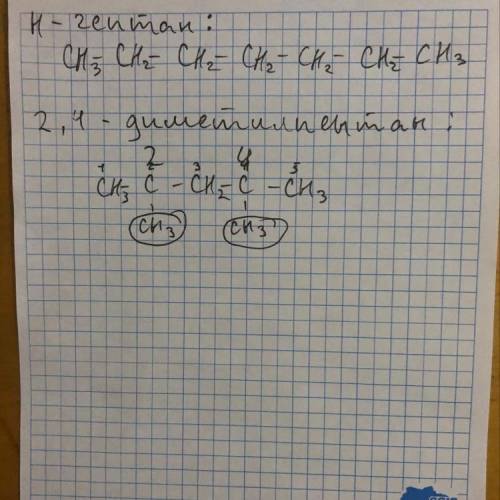 н-гептан:
CH3- CH2- CH2- CH2- CH2- CH2- CH3
2,4-диметилпентан:
1 2 3 4 5
CH3- C - CH2- C - CH3
CH3 CH3